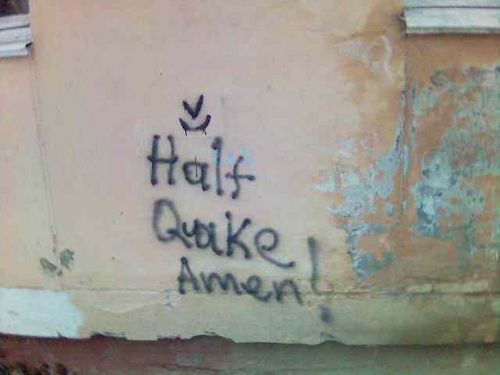 Half
Quake
Amen!